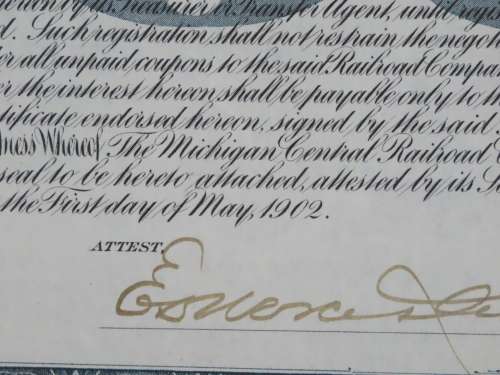 by its Treasurer or Transfer Agent, until
d. Such registration shall not restrain the negot
r all unpaid coupons to the said Railroad Compa
r the interest hereon, shall be payable only to th
tificate endorsed hereon, signed by the said
ness Whereof, The Michigan Central Railroad
seal to be hereto attached, attested by its S
the First day of May, 1902.
ATTEST.